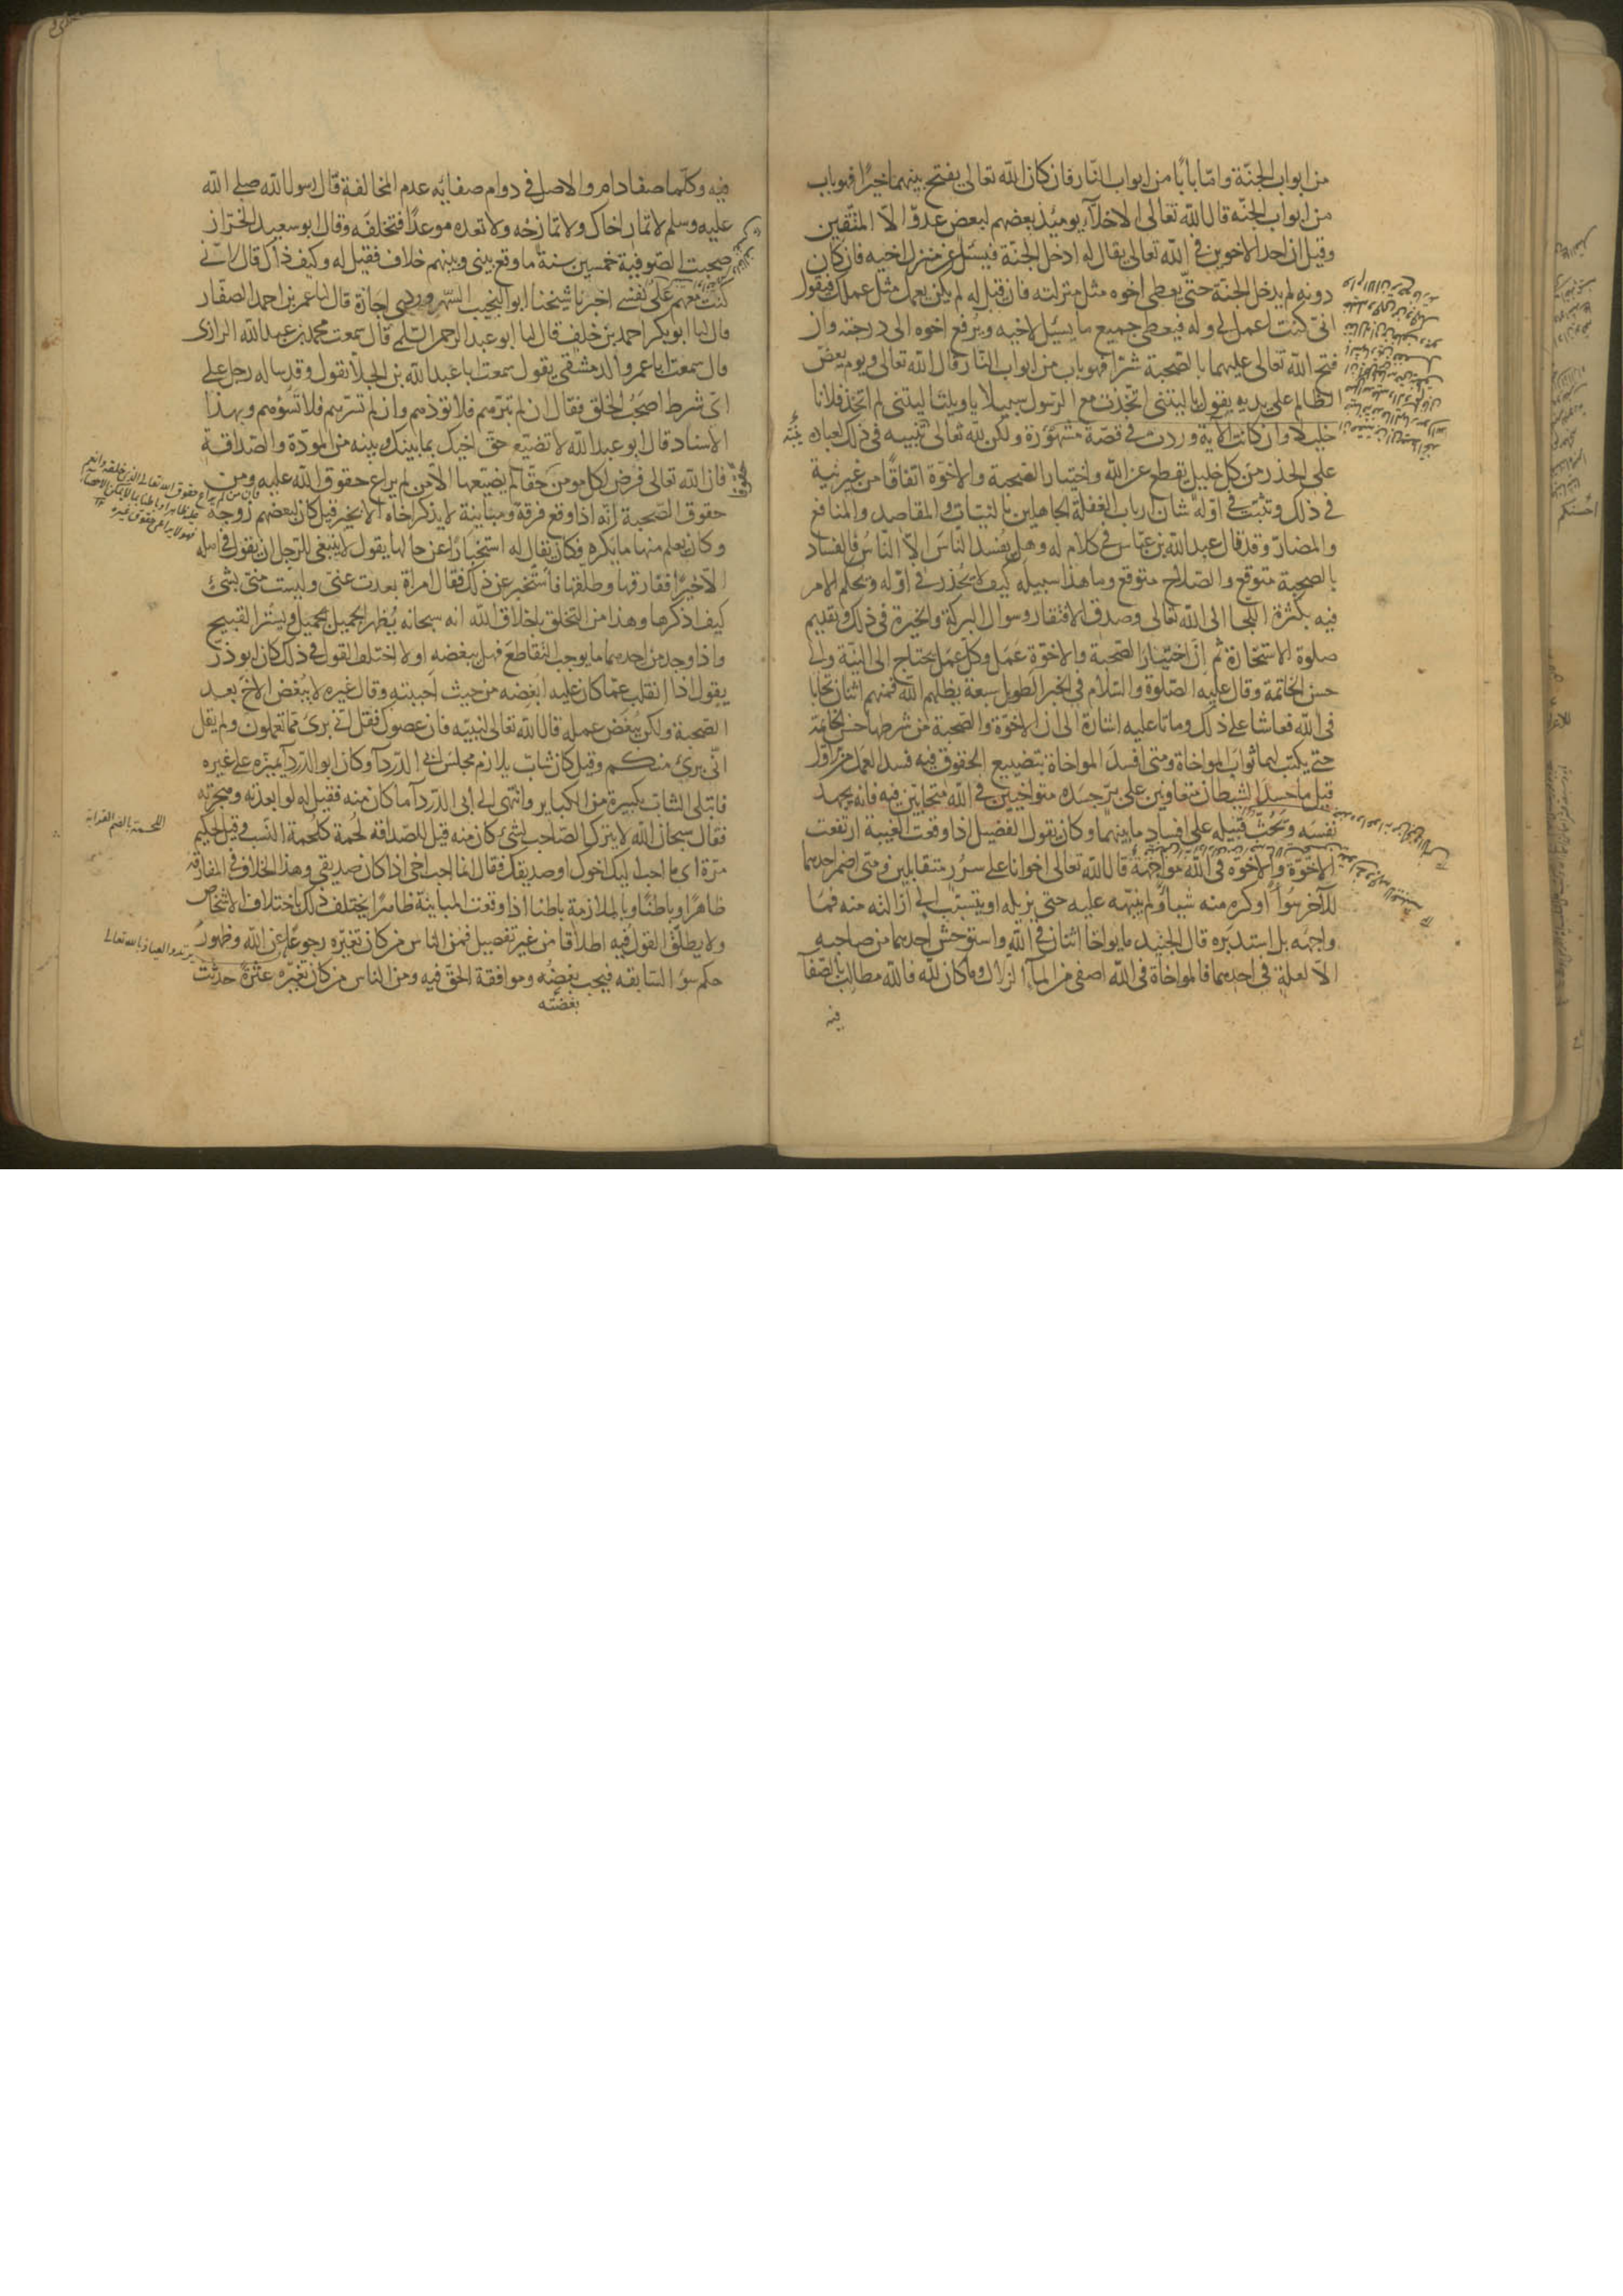 من ابواب الجنّة وامّا بابًا من ابواب النّار فان كان الله تعالى يفتح بينهما خيرًا فهو باب
من ابواب الجنّه قال الله تعالى الاخلّاء يومئذ بعضهم لبعض عدوّ الّا المتّقين
وقيل ان احد الاخوين فى الله تعالى يقال له ادخل الجنّة فيسئل عن منزل اخيه فان كان
دونه لم يدخل الجنة حتّى يعطى اخوه مثل منزلته فان قيل له لم يكن يعمل مثل عملك فيقول
انّى كنت اعمل لى وله فيعطى جميع ما يسئل لاخيه ويرفع اخوه الى درجته وان
فتح الله تعالى عليهما بالصّحبة شرّا فهو باب من ابواب النّار قال الله تعالى ويوم يعضّ
الظالم على يديه يقول يا ليتنى اتّخذت مع الرّسول سبيلا يا ويلتا ليتنى لم اتّخذ فلانا
خليلا وان كانت الآية وردت فى قصّة مشهورة ولكن لله تعالى تنبيه فى ذلك لعباده
على الحذر من كلّ خليل يقطع عن الله واختيار الصّحبة والاخوّة اتفاقًا من غير نيّة
فى ذلك وتثبّت فى اوّله شان ارباب الغفلة الجاهلين بالنيّات والمقاصد والمنافع
والمضارّ وقد قال عبد الله بن عبّاس فى كلام له وهل يفسد النّاسَ الّا النّاسُ فالفساد
بالصّحبة متوقّع والصّلاح متوقّع وما هذا سبيله كيف لا يحذر فى اوّله ويحكم الامر
فيه بكثرة اللّجا الى الله تعالى وصدق الافتقار وسوال البركة والخيرة فى ذلك وتقديم
صلوة الاستخارة ثم انّ اختيار الصّحبة والاخوّة عمل وكلّ عمل يحتاج الى النيّة والى
حسن الخاتمة وقال عليه الصّلوة والسّلام فى الخبر الطويل سبعة يظلّهم الله فمنهم اثنان تحابّا
فى الله فعاشا على ذلك وماتا عليه اشارة الى ان الاخوّة والصّحبة من شرطها حسن الخاتمة
حتى يكتب لهما ثواب المواخاة ومتى افسد المواخاة بتضييع الحقوق فيه فسد العمل من اوّل
قيل ما حسد الشيطان متعاونين على برّ حسده متواخيين فى الله متحابّين فيه فانه يجهد
نفسه ويحثّ قبيله على افساد ما بينهما وكان يقول الفضيل اذا وقعت الغيبة ارتفعت
الاخوّة والاخوّة فى الله مواجهة قال الله تعالى اخوانا على سرر متقابلين ومتى اضمر احدهما
للآخر سوأً او كره منه شيأ ولم ينبّهه عليه حتى يزيله او يتسبّب الى ازالته منه فما
واجهه بل استدبره قال الجنيد ما تواخا اثنان فى الله واستوحش احدهما من صاحبه
الّا لعلة فى احدهما فالمواخاة فى الله اصفى من المآء الزلال وما كان لله فالله مطالب بالصّفآ
فيه
فيه وكلّما صفا دام والاصل فى دوام صفائه عدم المخالفة قال رسول الله صلى الله
عليه وسلم لا تمار اخاك ولا تمازحه ولا تعده موعدًا فتخلفه وقال ابو سعيد الخرّاز
صحبت الصّوفيّة خمسين سنة ما وقع بينى وبينهم خلاف فقيل له وكيف ذاك قال لانّى
كنت معهم على نفسى اخبرنا شيخنا ابو النجيب السّهروردى اجازة قال انا عمر بن احمد الصفّار
قال انا ابو بكر احمد بن خلف قال انا ابو عبد الرحمن السّلمى قال سمعت محمد بن عبد الله الرازى
قال سمعت ابا عمرو الدمشقى يقول سمعت ابا عبد الله بن الجلّا يقول وقد ساله رجل على
اىّ شرط اصحب الخلق فقال ان لم تبرّهم فلا تؤذهم وان لم تسرّهم فلا تسؤهم وبهذا
الاسناد قال ابو عبد الله لا تضيّع حقّ اخيك بما بينك وبينه من المودّة والصّداقة
فان الله تعالى فرض لكل مومن حقًا لم يضيّعها الّا من لم يراع حقوق الله عليه ومن
حقوق الصّحبة انّه اذا وقع فرقة ومباينة لا يذكر اخاه الّا بخير قيل كان لبعضهم زوجة
وكان يعلم منها ما يكره فكان يقال له استخبارًا عن حالها يقول لا ينبغى للرّجل ان يقول فى اهله
الّا خيرًا ففارقها وطلّقها فاستخبر عن ذلك فقال امراة بعدت عنّى وليست منّى بشئ
كيف اذكرها وهذا من التخلق باخلاق الله انه سبحانه يُظهر الجميل ويستر القبيح
واذا وجد من احدهما ما يوجب التّقاطع فهل يبغضه او لا اختلف القول فى ذلك كان ابو ذرّ
يقول اذا انقلب عمّا كان عليه ابغضه من حيث احببته وقال غيره لا يُبغض الاخ بعد
الصّحبة ولكن يبغض عمله قال الله تعالى لنبيّه فان عصوك فقل انى برئ ممّا تعملون ولم يقل
انّى برئ منكم وقيل كان شابّ يلازم مجلس ابى الدّردآ وكان ابو الدّردآ يميّزه على غيره
فابتلى الشابّ بكبيرة من الكباير وانتهى الى ابى الدّردآ ما كان منه فقيل له لو ابعدته وهجرته
فقال سبحان الله لا يترك الصّاحب لشئ كان منه قيل الصّداقة لُحمة كلُحمة النّسب وقيل لحكيم
مرّة اى ما احبّ اليك اخوك او صديقك فقال انما احب اخى اذا كان صديقى وهذا الخلاف فى المفارقة
ظاهرًا وباطنًا وبالملازمة باطنا اذا وقعت المباينة ظاهرًا يختلف ذلك باختلاف الاشخاص
ولا يطلق القول فيه اطلاقا من غير تفصيل فمن الناس من كان تغيّره رجوعًا عن الله وظهور
حكم سوء السّابقه فيجب بغضه وموافقة الحقّ فيه ومن الناس من كان تغيّره عثرةً حدثت
بغضَتُه
اللحمة بالضم القرابة
يرتد والعياذ بالله تعالى